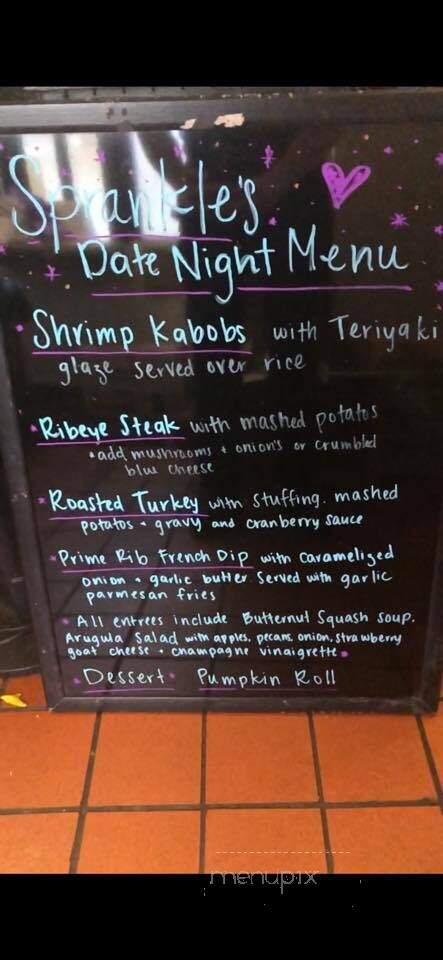 Sprankle's
Date Night Menu
• Shrimp Kabobs with Teriyaki
glaze served over rice
• Ribeye Steak with mashed potatos
*add mushrooms + onion's or crumbled
blue cheese
• Roasted Turkey with stuffing. mashed
potatos + gravy and cranberry sauce
• Prime Rib French Dip with caramelized
onion + garlic butter served with garlic
parmesan fries
• All entrees include Butternut Squash soup.
Arugula Salad with apples, pecans, onion, strawberry
goat cheese + champagne vinaigrette •
• Dessert • Pumpkin Roll
menupix